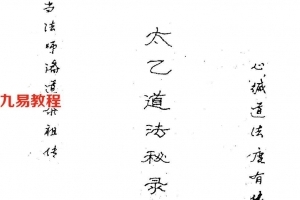 心缄道法度有
太乙道法秘录
当法师济道
祖传
九易教程